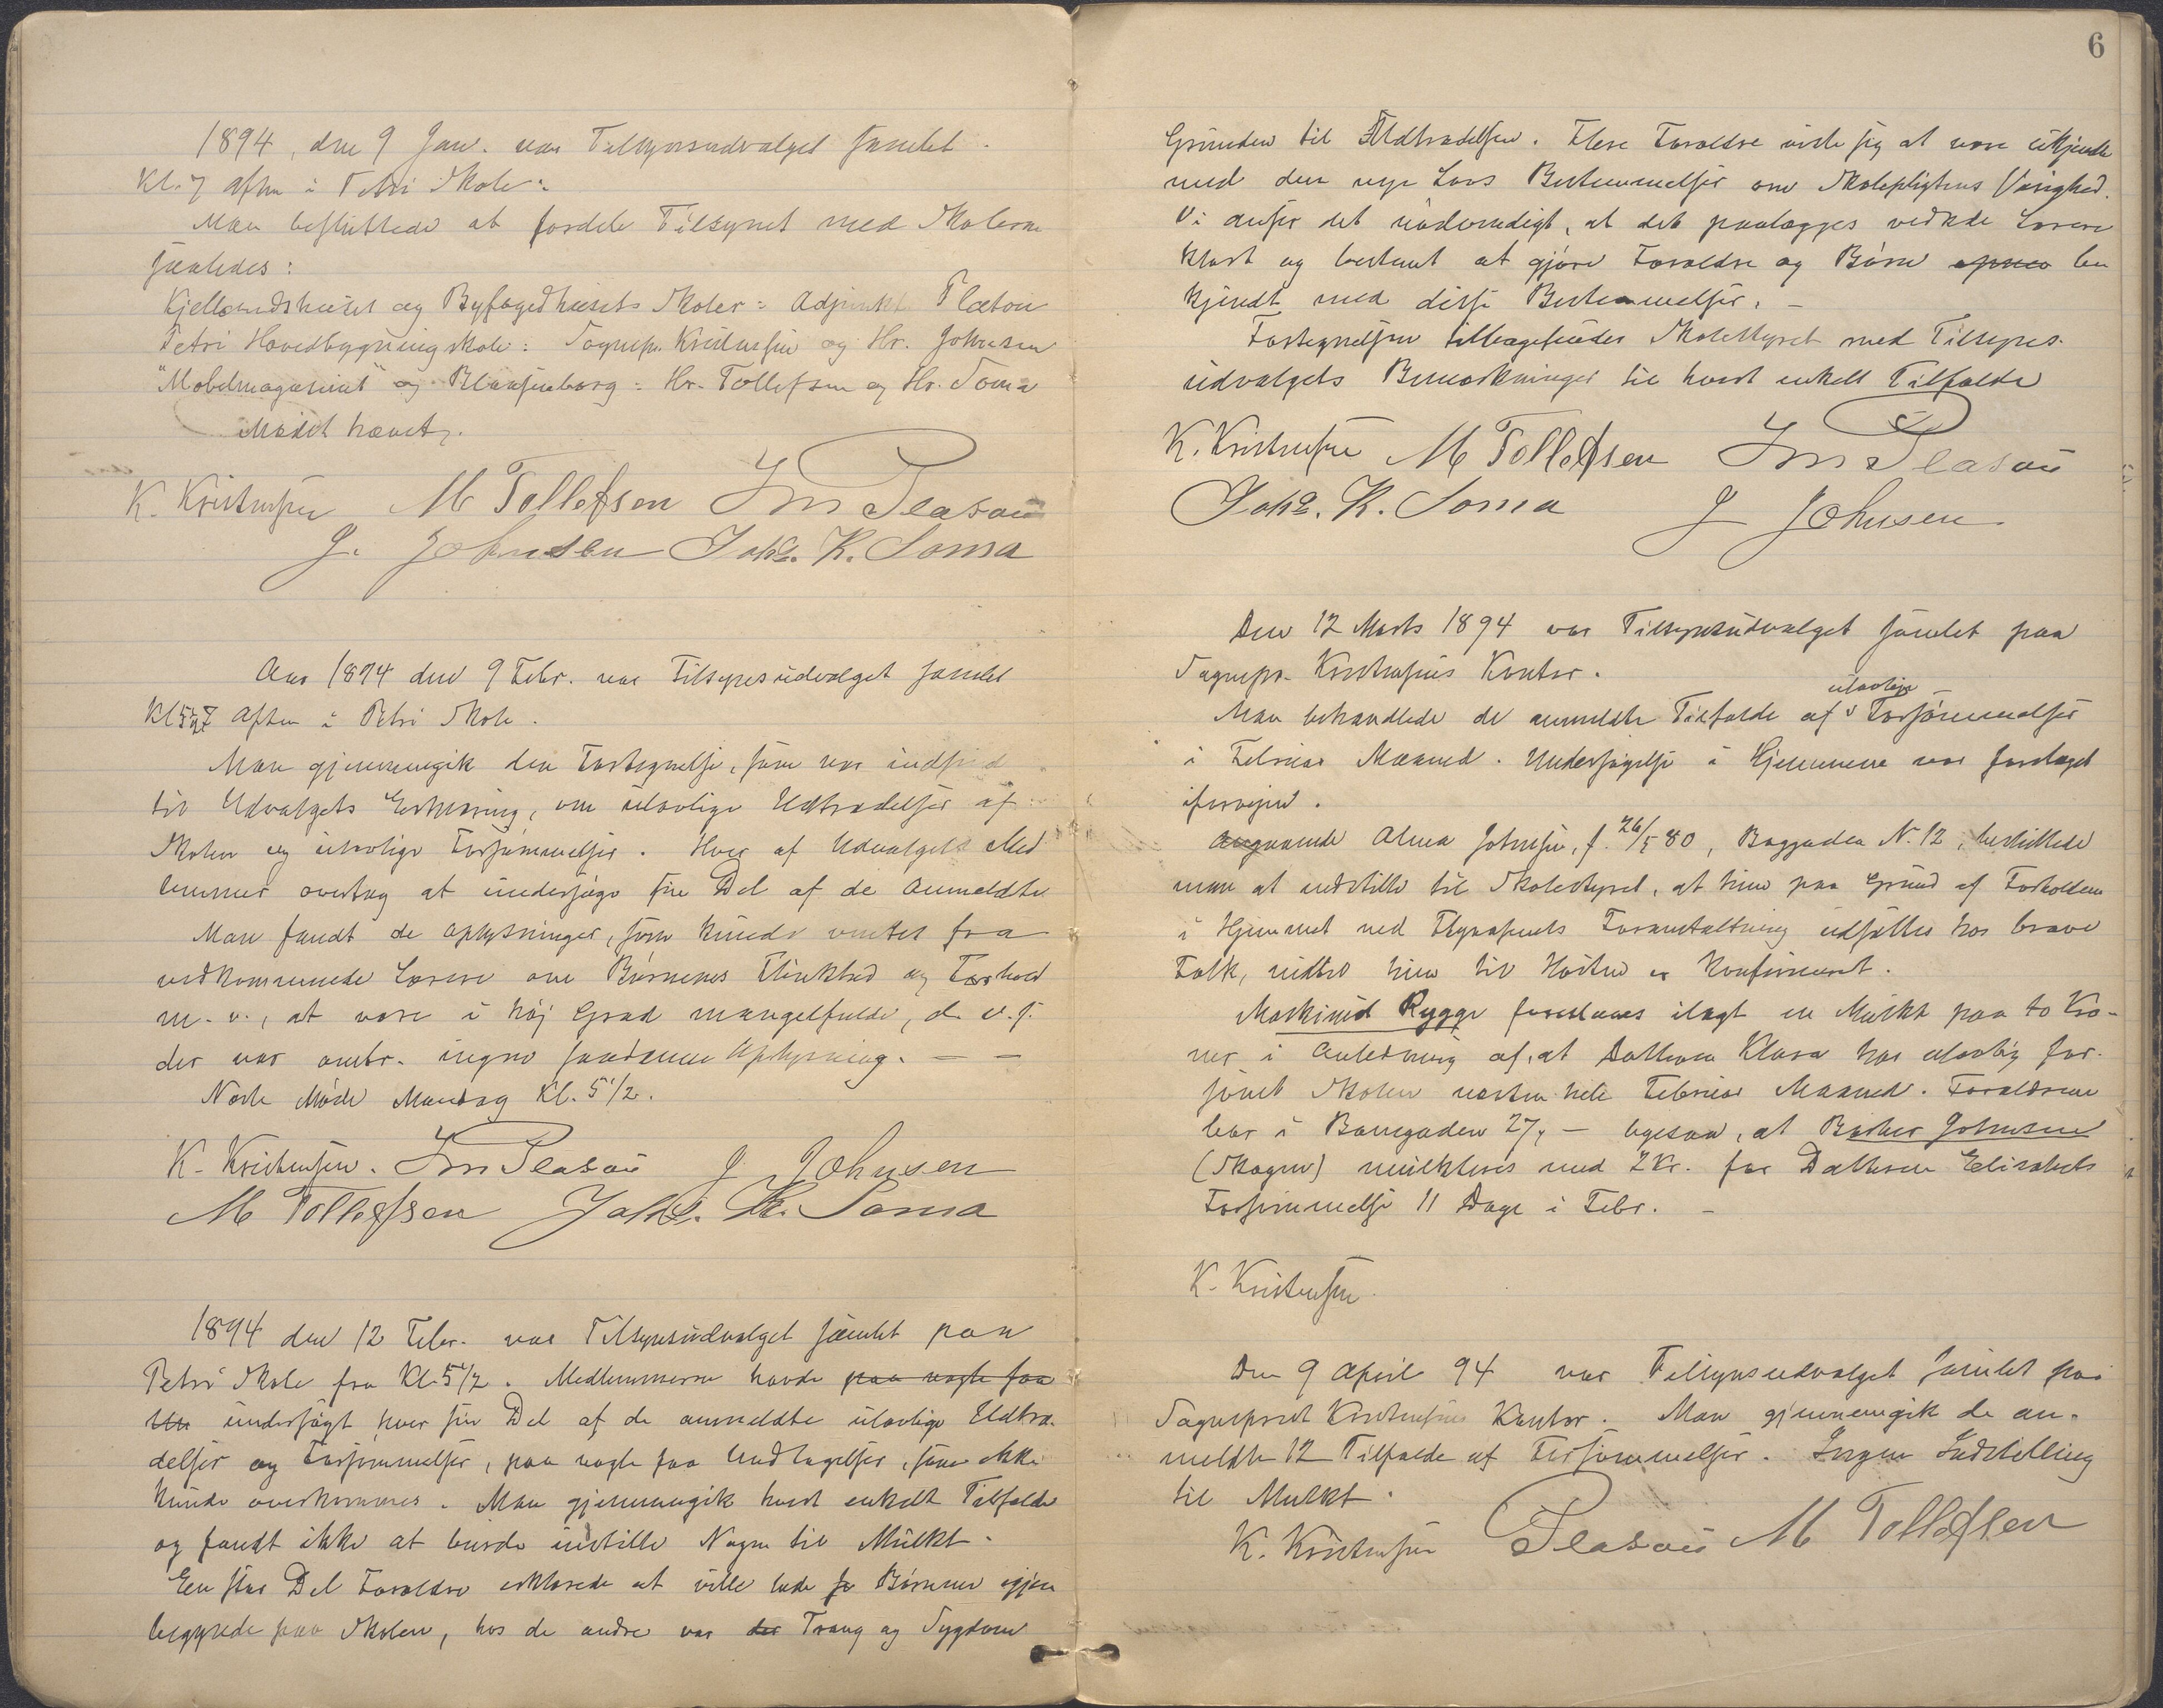 1894, den 9 Jan. var Tilsynsudvalget samlet
Kl. 7 Aften i Petri Skole.
Man besluttede at fordele Tilsynet med Skolerne
saaledes:
Kjellandshuset og Byfogedhusets Skoler: Adjunkt Platou
Petri Hovedbygningskole: Sognepr. Kristensen og Hr. Johnsen
"Møbelmagasinet" og Blaasenborg: Hr. Tollefsen og Hr. Soma
Mødet hævet.
K. Kristensen M Tollefsen Platou
J. Johnsen Johs. K. Soma
Aar 1894 den 9 Febr. var Tilsynsudvalget samlet
Kl. Aften i Petri Skole.
Man gjennemgik den Fortegnelse, som var indsendt
til Udvalgets Erklæring, om ulovlige Udtrædelser af
Skolen og ulovlige Forsømmelser. Hver af Udvalgets Med
lemmer overtog at undersøge sin Del af de Anmeldte.
Man fandt de Oplysninger, som kunde ventes fra
vedkommende Lærere om Børnenes Flinkhed og Forhold
m. v., at være i høj Grad mangelfulde, d. v. s.
der var omtr. ingen saadanne Oplysning. — —
Næste Møde Mandag Kl. 5 1/2.
K. Kristensen. Platou J Johnsen
M Tollefsen Johs. K. Soma
1894 den 12 Febr. var Tilsynsudvalget samlet paa
Petri Skole fra Kl. 5 1/2. Medlemmerne havde paa nogle faa
undersøgt hver sin Del af de anmeldte ulovlige Udtræ-
delser og Forsømmelser, paa nogle faa Undtagelser, som ikke
kunde overkommes. Man gjennemgik hvert enkelt Tilfælde
og fandt ikke at burde indstille Nogen til Mulkt.
En stor Del Forældre erklærede at ville lade Børnene igjen
begynde paa Skolen, hos de andre var der Trang og Sygdom
6
Grunden til Udtrædelsen. Flere Forældre viste sig at være ukjendte
med den nye Lovs Bestemmelser om Skolepligtens Varighed.
Vi anser det nødvendigt, at det paalægges vedkde Lærere
klart og bestemt at gjøre Forældre og Børn be
kjendt med disse Bestemmelser. —
Fortegnelsen tilbagesendes Skolestyret med Tilsyns-
udvalgets Bemærkninger til hvert enkelt Tilfælde
K. Kristensen M Tollefsen Platou
Johs. K. Soma J Johnsen
Den 12 Marts 1894 var Tilsynsudvalget samlet paa
Sognepr. Kristensens Kontor.
ulovlige
Man behandlede de anmeldte Tilfælde af Forsømmelser
i Februar Maaned. Undersøgelse i Hjemmene var foretaget
iforvejen.
Angaaende Alma Johnsen, f. 26/5 80, Baggaden N. 12, besluttede
man at indstille til Skolestyret, at hun paa Grund af Forholdene
i Hjemmet ved Foranstaltning udsættes hos brave
Folk, indtil hun til Høsten er konfirmeret.
Maskinist Rygge foreslaaes ilagt en Mulkt paa to Kro-
ner i Anledning af, at Datteren Klara har ulovlig for-
sømt Skolen næsten hele Februar Maaned. Forældrene
bor i 27, — ligesaa, at Johnsen
(Skogen) mulkteres med 2 Kr. for Datteren Elisabets
Forsømmelse 11 Dage i Febr. —
K. Kristensen.
Den 9 April 94 var Tilsynsudvalget samlet paa
Sogneprest Kristensens Kontor. Man gjennemgik de an-
meldte 12 Tilfælde af Forsømmelser. Ingen Indstilling
til Mulkt.
K. Kristensen Platou M Tollefsen